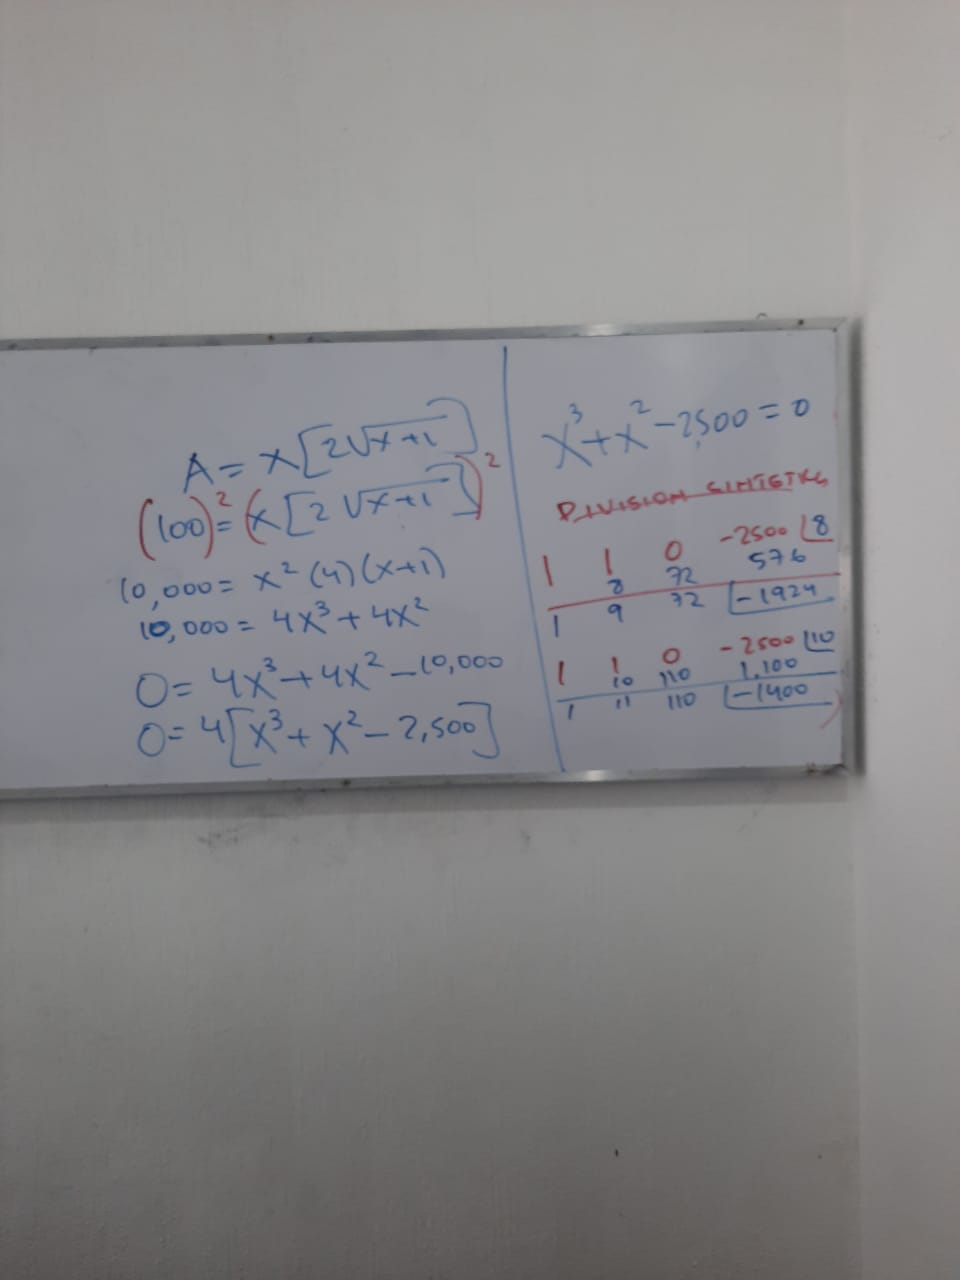 A = x[2√x+1]
(100)² = (x[2√x+1])²
10,000 = x² (4)(x+1)
10,000 = 4x³ + 4x²
0 = 4x³ + 4x² - 10,000
0 = 4[x³ + x² - 2,500]
x³ + x² - 2,500 = 0
DIVISION SINTETICA
1 1 0 -2500 |8
8 72 576
1 9 72 |-1924
1 1 0 -2500 |10
10 110 1,100
1 11 110 |-1400